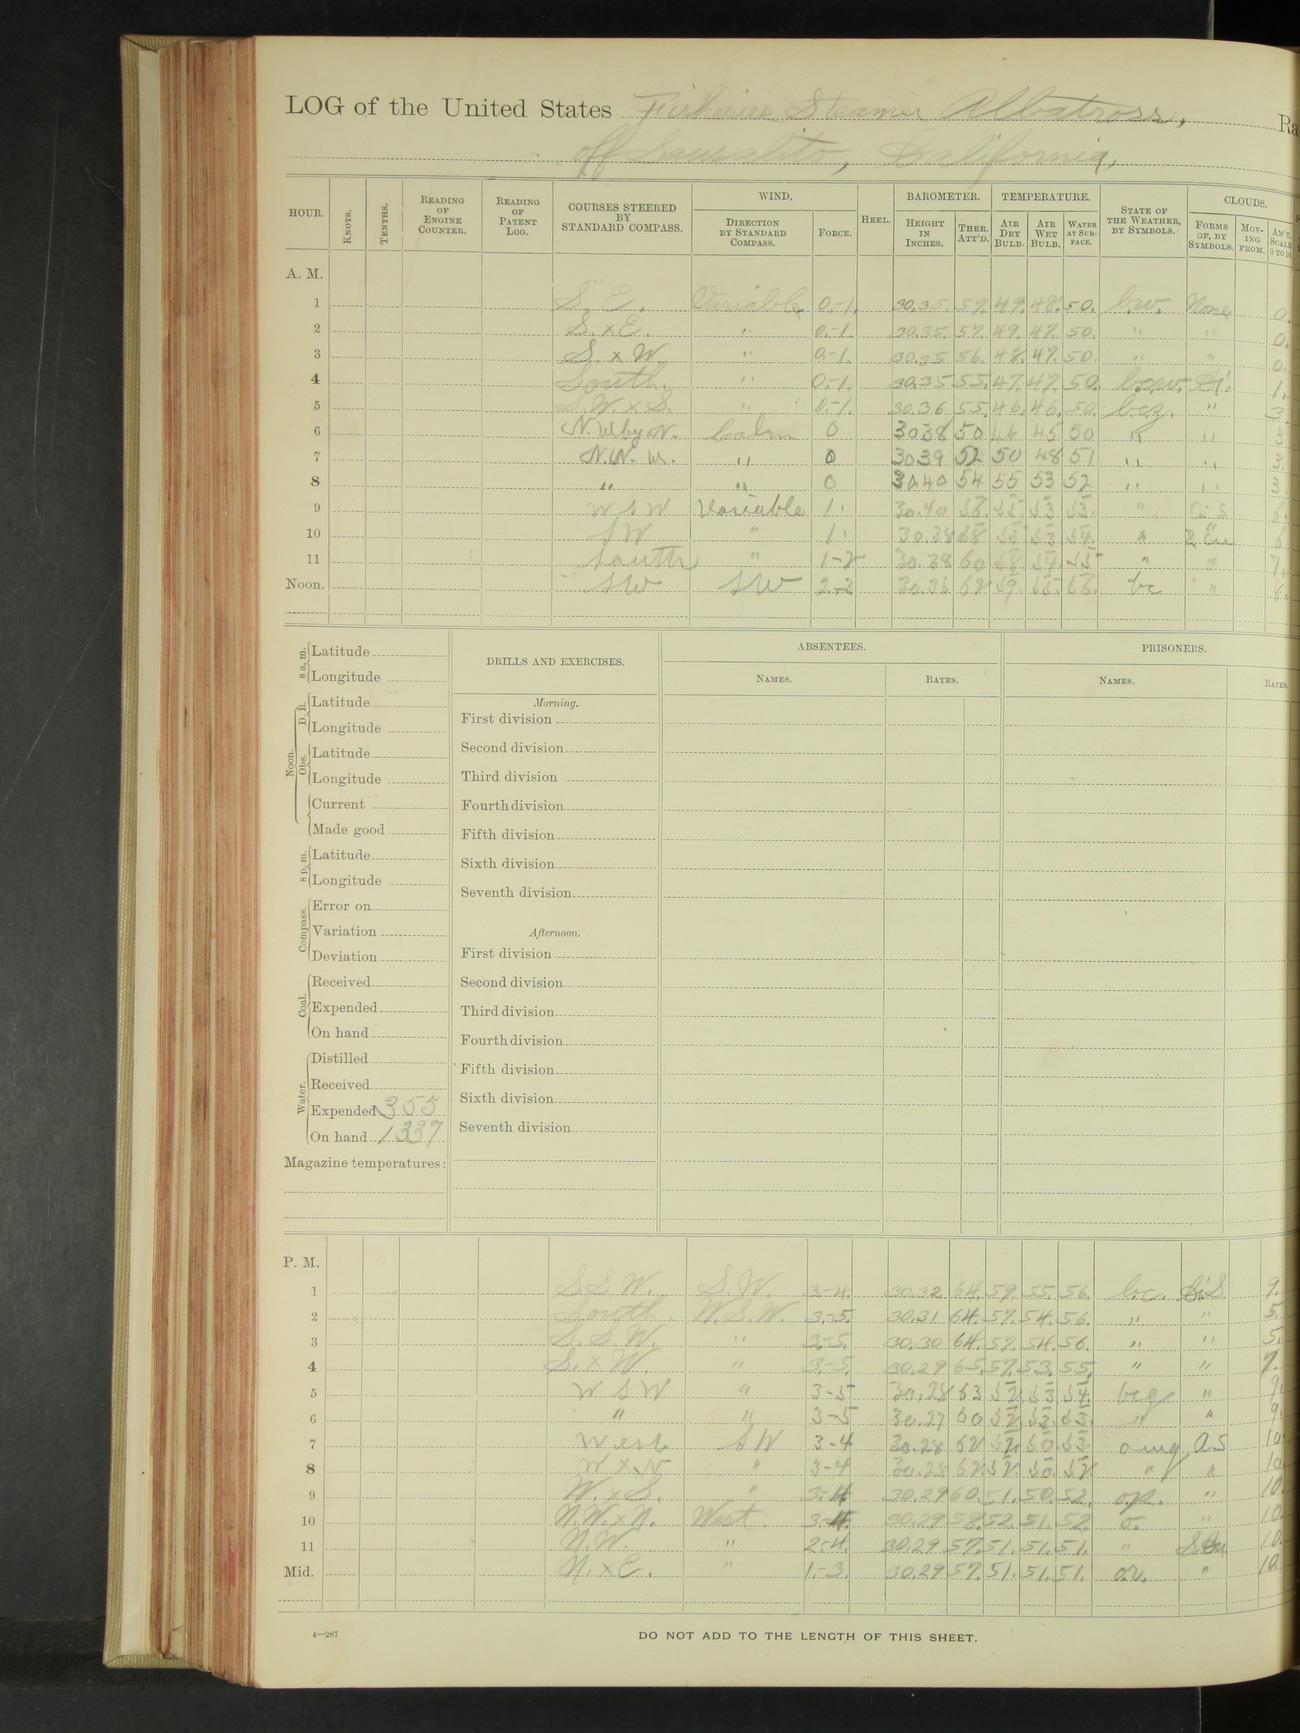 LOG of the United States Fisheries Steamer Albatross, Ra
off Sausalito, California,
HOUR. KNOTS. TENTHS. READING OF ENGINE COUNTER. READING OF PATENT LOG. COURSES STEERED BY STANDARD COMPASS. WIND. DIRECTION BY STANDARD COMPASS. FORCE. HEEL. BAROMETER. HEIGHT IN INCHES. THER. ATT'D. TEMPERATURE. AIR DRY BULB. AIR WET BULB. WATER AT SURFACE. STATE OF THE WEATHER, BY SYMBOLS. CLOUDS. FORMS OF, BY SYMBOLS. MOVING FROM. AM'T. SCALE 0 TO 10.
A. M.
1 S. E. Variable 0.-1. 30.35. 57. 49. 48. 50. b.w. None 0.
2 S. x E. " 0.-1. 30.35. 57. 49. 47. 50. " " 0.
3 S. x W. " 0.-1. 30.35 56. 48. 47. 50. " " 0.
4 South. " 0.-1. 30.35 55. 47. 47. 50. b.c.w. Ci. 1.
5 S.W. x S. " 0.-1. 30.36 55. 46. 46. 50. b.c.z. " 3.
6 N.W by N. Calm 0 30 38 50 46 45 50 " " 3
7 N.N.W. " 0 30 39 52 50 48 51 " " 3.
8 " " 0 30.40 54 55 53 52 " " 3.
9 W S W Variable 1 30.40 " Ci S
10 S W " 1 30.38 "
11 South " 1-2 30.38 60 " " 7.
Noon. SW SW 2-3 30.36 62 bc "
8 a. m. Latitude
Longitude
Noon. D. R. Latitude
Longitude
Obs. Latitude
Longitude
Current
Made good
8 p. m. Latitude
Longitude
Compass. Error on
Variation
Deviation
Coal. Received
Expended
On hand
Water. Distilled
Received
Expended 355
On hand 1337
Magazine temperatures:
DRILLS AND EXERCISES.
Morning.
First division
Second division
Third division
Fourth division
Fifth division
Sixth division
Seventh division
Afternoon.
First division
Second division
Third division
Fourth division
Fifth division
Sixth division
Seventh division
ABSENTEES.
NAMES. RATES.
PRISONERS.
NAMES. RATES.
P. M.
1 S.S.W. S.W. 3-4. 30.32 64. 59. 55. 56. b.c. Ci.S. 9.
2 South. W.S.W. 3-5. 30.31 64. 57. 54. 56. " " 5.
3 S.S.W. " 3-5. 30.30 64. 57. 54. 56. " " 5.
4 S. x W. " 3-5. 30.29 65. 57. 53. 55. " " 7.
5 W S W " 3-5 30.28 63 52 53 54. bcg " 9.
6 " " 3-5 30.27 60 52 53. " " 9.
7 West SW 3-4 30.28 62 52 50 53. omg A S 10.
8 W x N " 3-4 30.28 62 52. 50. 52 " " 10.
9 W. x S. " 3-4 30.29 60. 51. 50. 52. op. " 10.
10 N.W. x N. West. 3-4. 30.29 58. 52. 51. 52. o. " 10
11 N.W. " 2-4. 30.29 57. 51. 51. 51. " 10.
Mid. N. x E. " 1.-3. 30.29 57. 51. 51. 51. " 10.
4—287 DO NOT ADD TO THE LENGTH OF THIS SHEET.